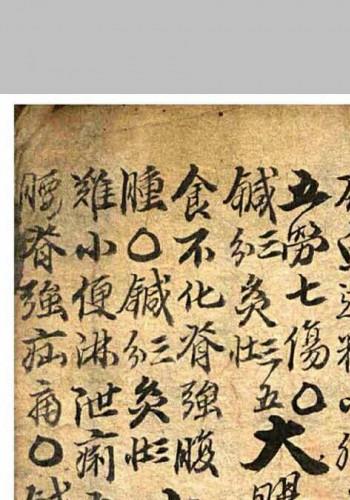 五勞七傷〇大腸
鍼三分灸三壯五
食不化脊強腹
腫〇鍼三分灸三壯
難小便淋泄痢
腰脊強疝痛〇